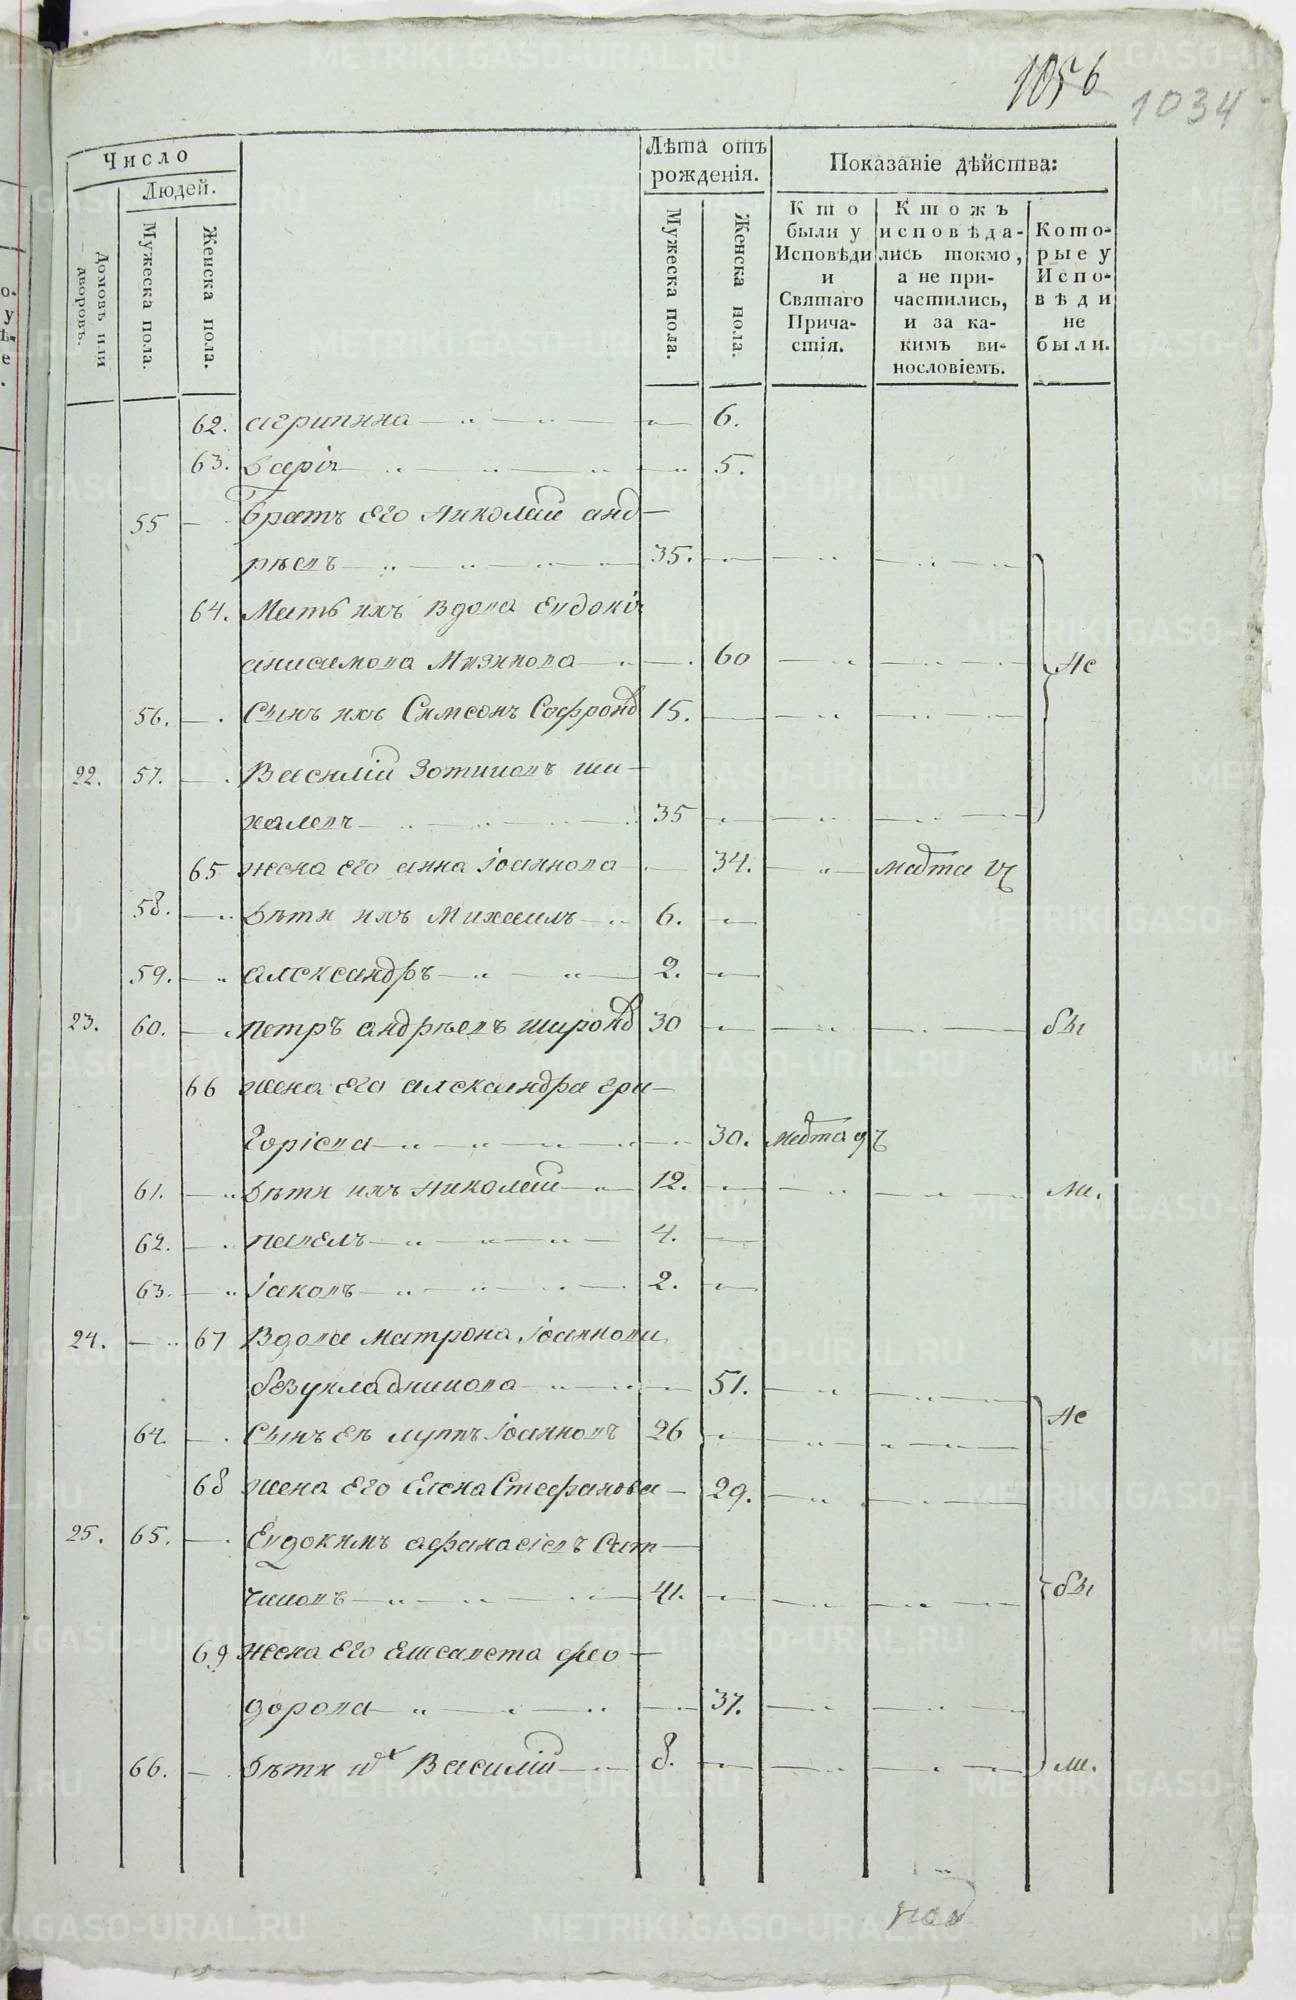 1056 1034
Число
Людей.
Домовъ или дворовъ.
Мужеска пола.
Женска пола.
Лѣта отъ рожденія.
Мужеска пола.
Женска пола.
Показаніе дѣйства:
Кто были у Исповѣди и Святаго Причастія.
Ктожъ исповѣдались токмо, а не причастились, и за какимъ винословіемъ.
Которые у Исповѣди не были.
62. агрипина 6.
63. дарія 5.
55 братъ его Николай анд
рѣевъ 35.
64. Мать ихъ вдова Евдокія
анисимова 60 Не
56. Сынъ ихъ Симеонъ Софронв 15.
22. 57. Василій Зотиковъ ши
халевъ 35
65 жена его анна Іоаннова 34.
58. дѣти ихъ Михаилъ 6.
59. александръ 2.
23. 60. петръ андрѣевъ широкв 30 бы
66 жена его александра гри
горіева 30.
61. дѣти ихъ николай 12. ли.
62. павелъ 4.
63. Іаковъ 2.
24. 67 Вдова матрона Іоаннова
безукладникова 51.
Не
64. Сынъ ея луппъ Іоанновъ 26
68 жена его Елена Стефанова 29.
25. 65. Евдокимъ афанасіевъ Сит
чиковъ 41. бы
69 жена его елисавета фео
дорова 37.
66. дѣти их Василій 8. ли.